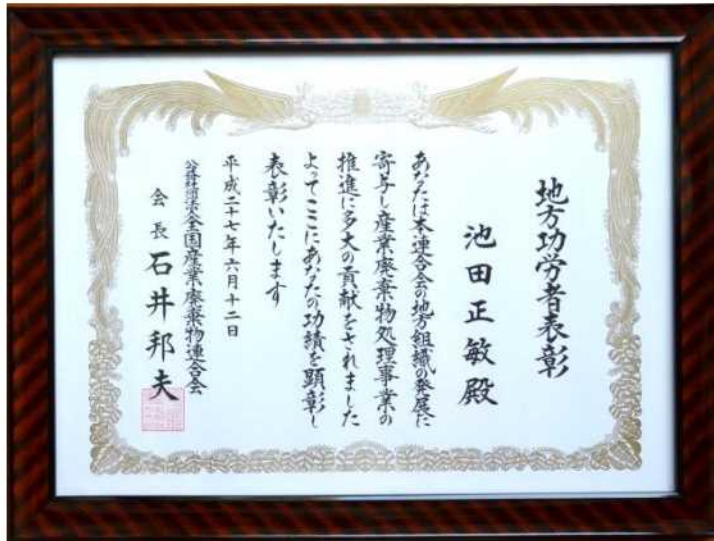 地方功労者表彰
池田正敏殿
あなたは本連合会の地方組織の発展に
寄与し産業廃棄物処理事業の
推進に多大の貢献をされました
よってここにあなたの功績を顕彰し
表彰いたします
平成二十七年六月十二日
公益社団法人全国産業廃棄物連合会
会長 石井邦夫